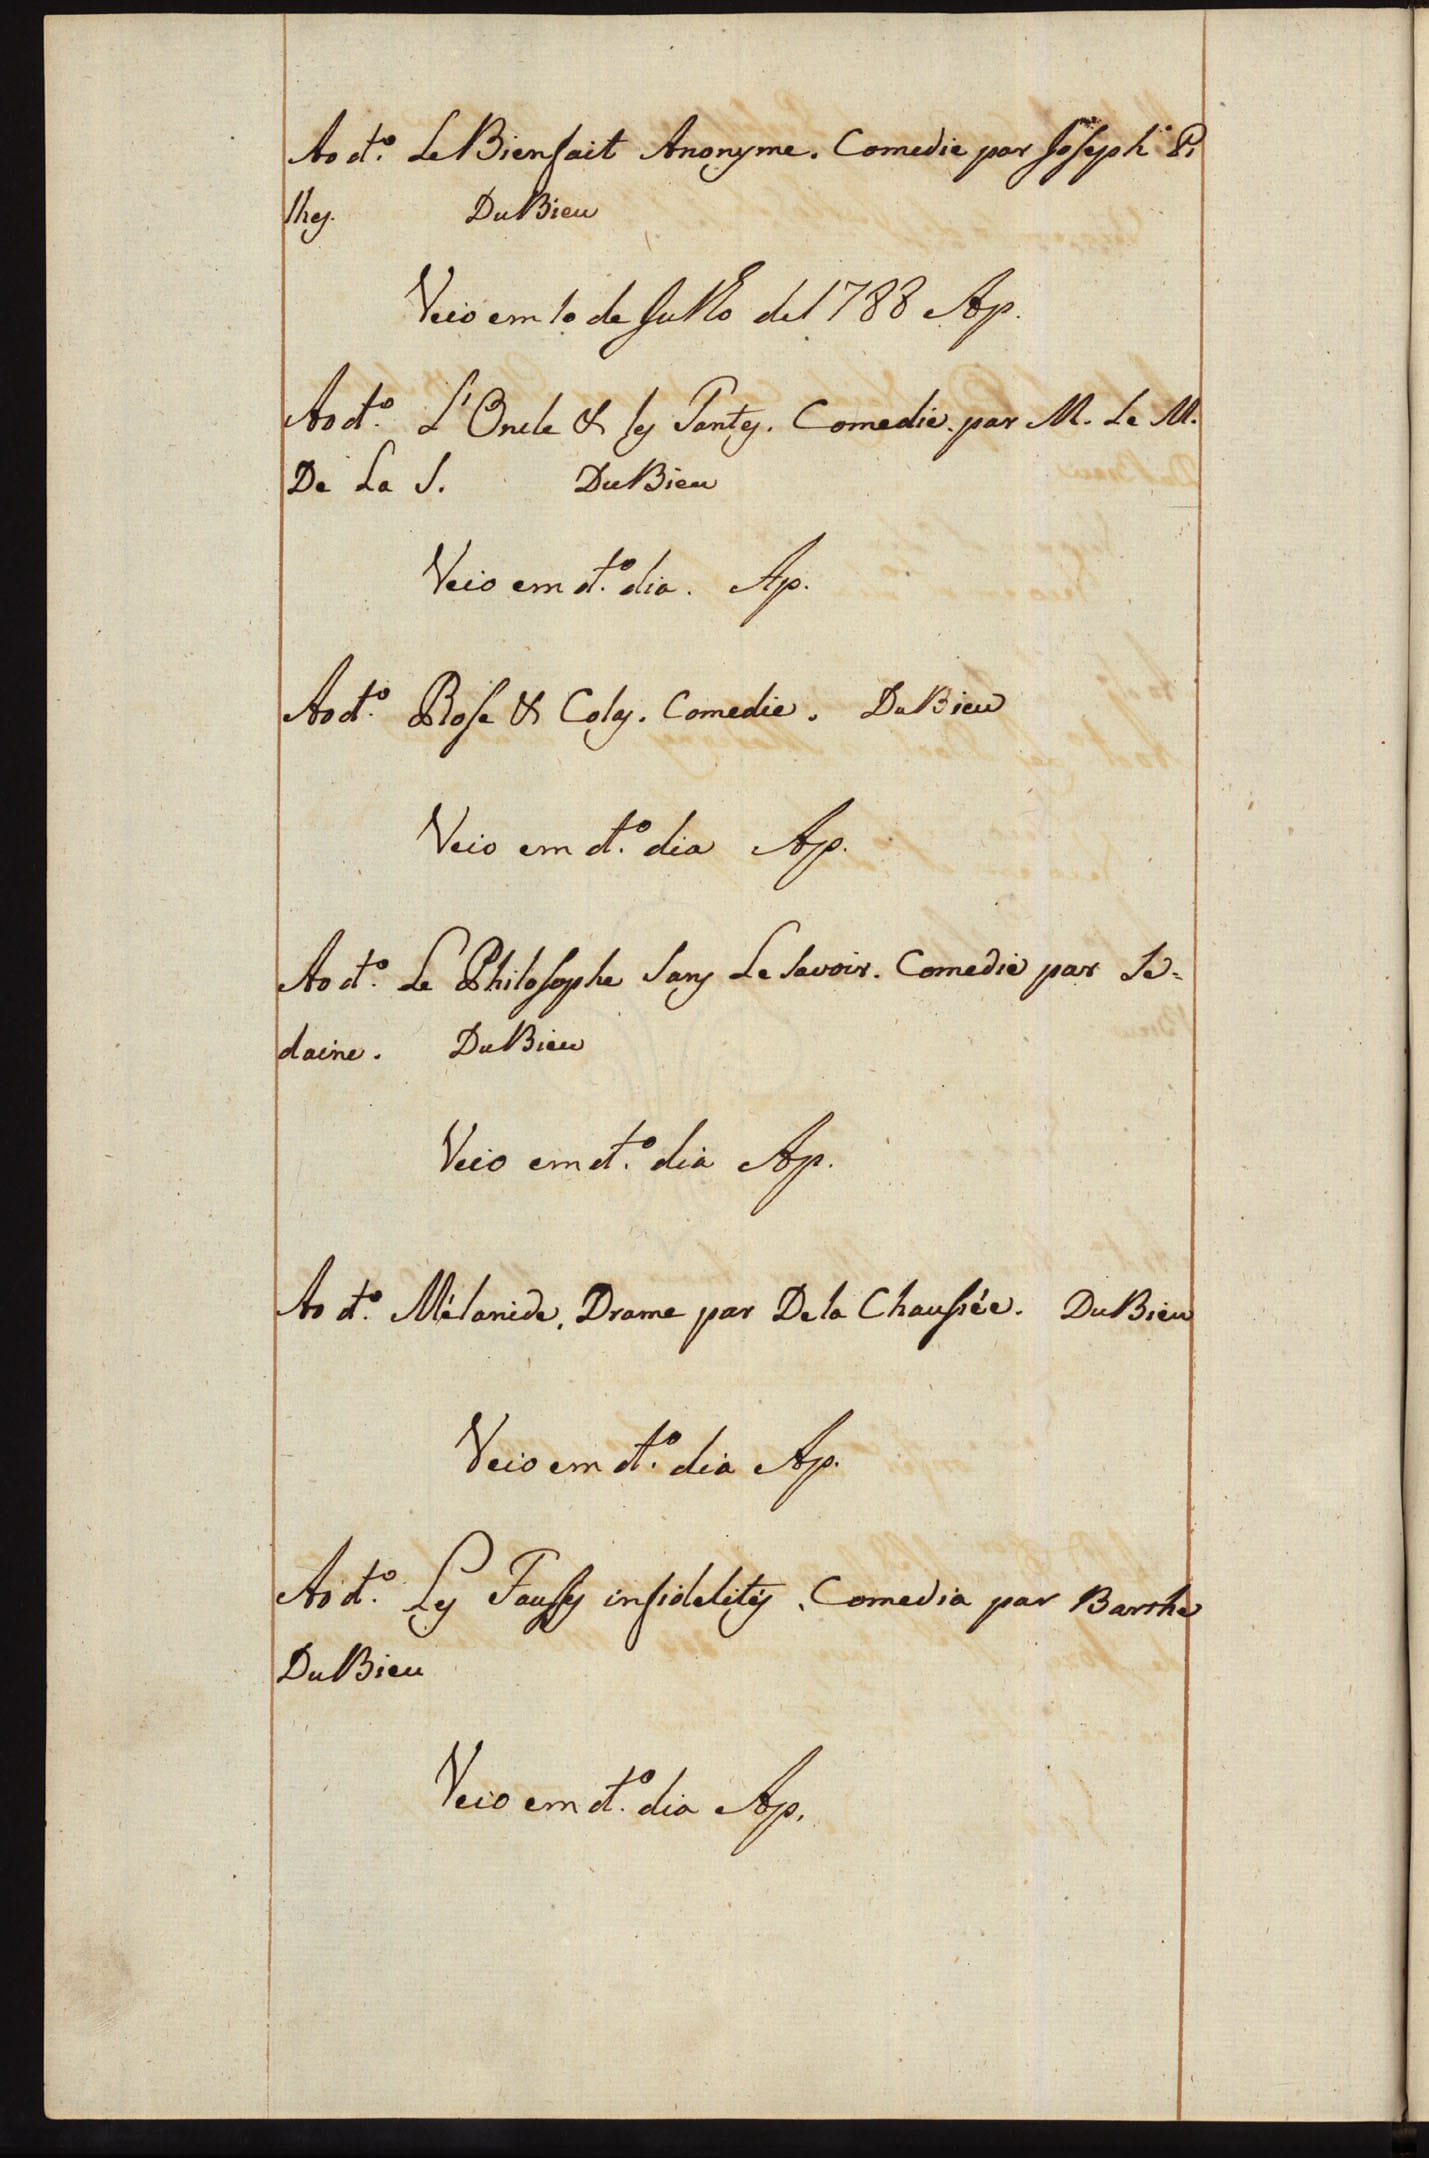 Ao d.º Le Bienfait Anonyme. Comedie par Joseph Pi
lhes. DuBieu
Veio em 10 de Julho de 1788 Ap.
Ao d.º L'Oncle & les Tantes. Comedie. par M. Le M.
De La S. DuBieu
Veio em d.º dia. Ap.
Ao d.º Rose & Colas. Comedie. DuBieu
Veio em d.º dia Ap.
Ao d.º Le Philosophe sans Le savoir. Comedie par Se=
daine. DuBieu
Veio em d.º dia Ap.
Ao d.º Mélanide, Drame par De la Chaussée. DuBieu
Veio em d.º dia Ap.
Ao d.º Les Fausses infidelités. Comedia par Barthe
DuBieu
Veio em d.º dia Ap.